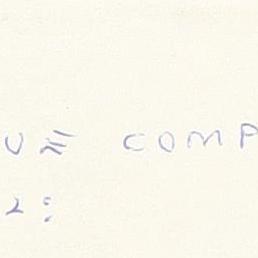 UE COMP
2: